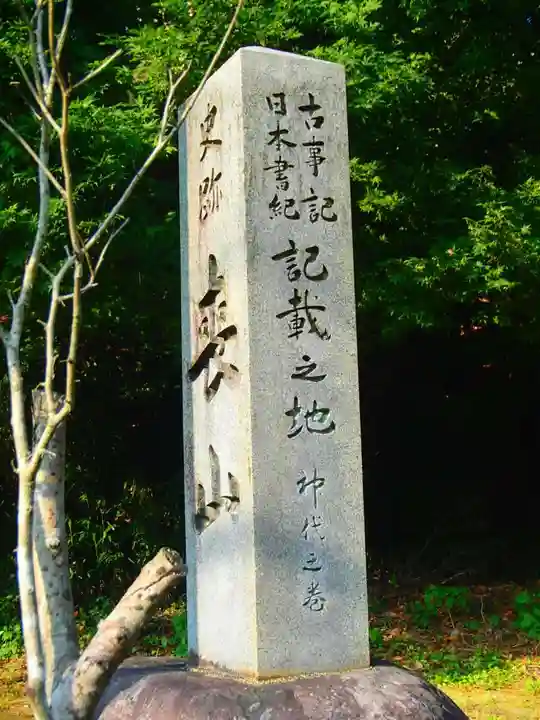 史跡 喪山
古事記
日本書紀
記載之地 神代之巻